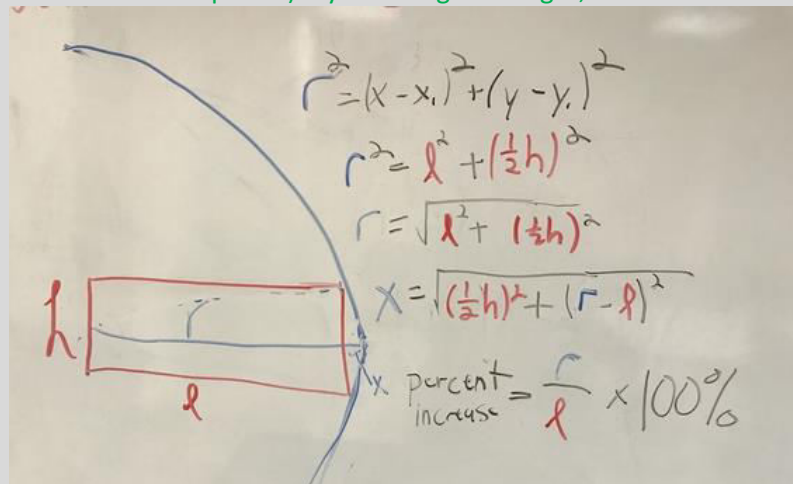 r² = (x - x₁)² + (y - y₁)²
r² = l² + (½h)²
r = √l² + (½h)²
x = √(½h)² + (r - l)²
percent increase = r/l × 100%
h
r
l
x